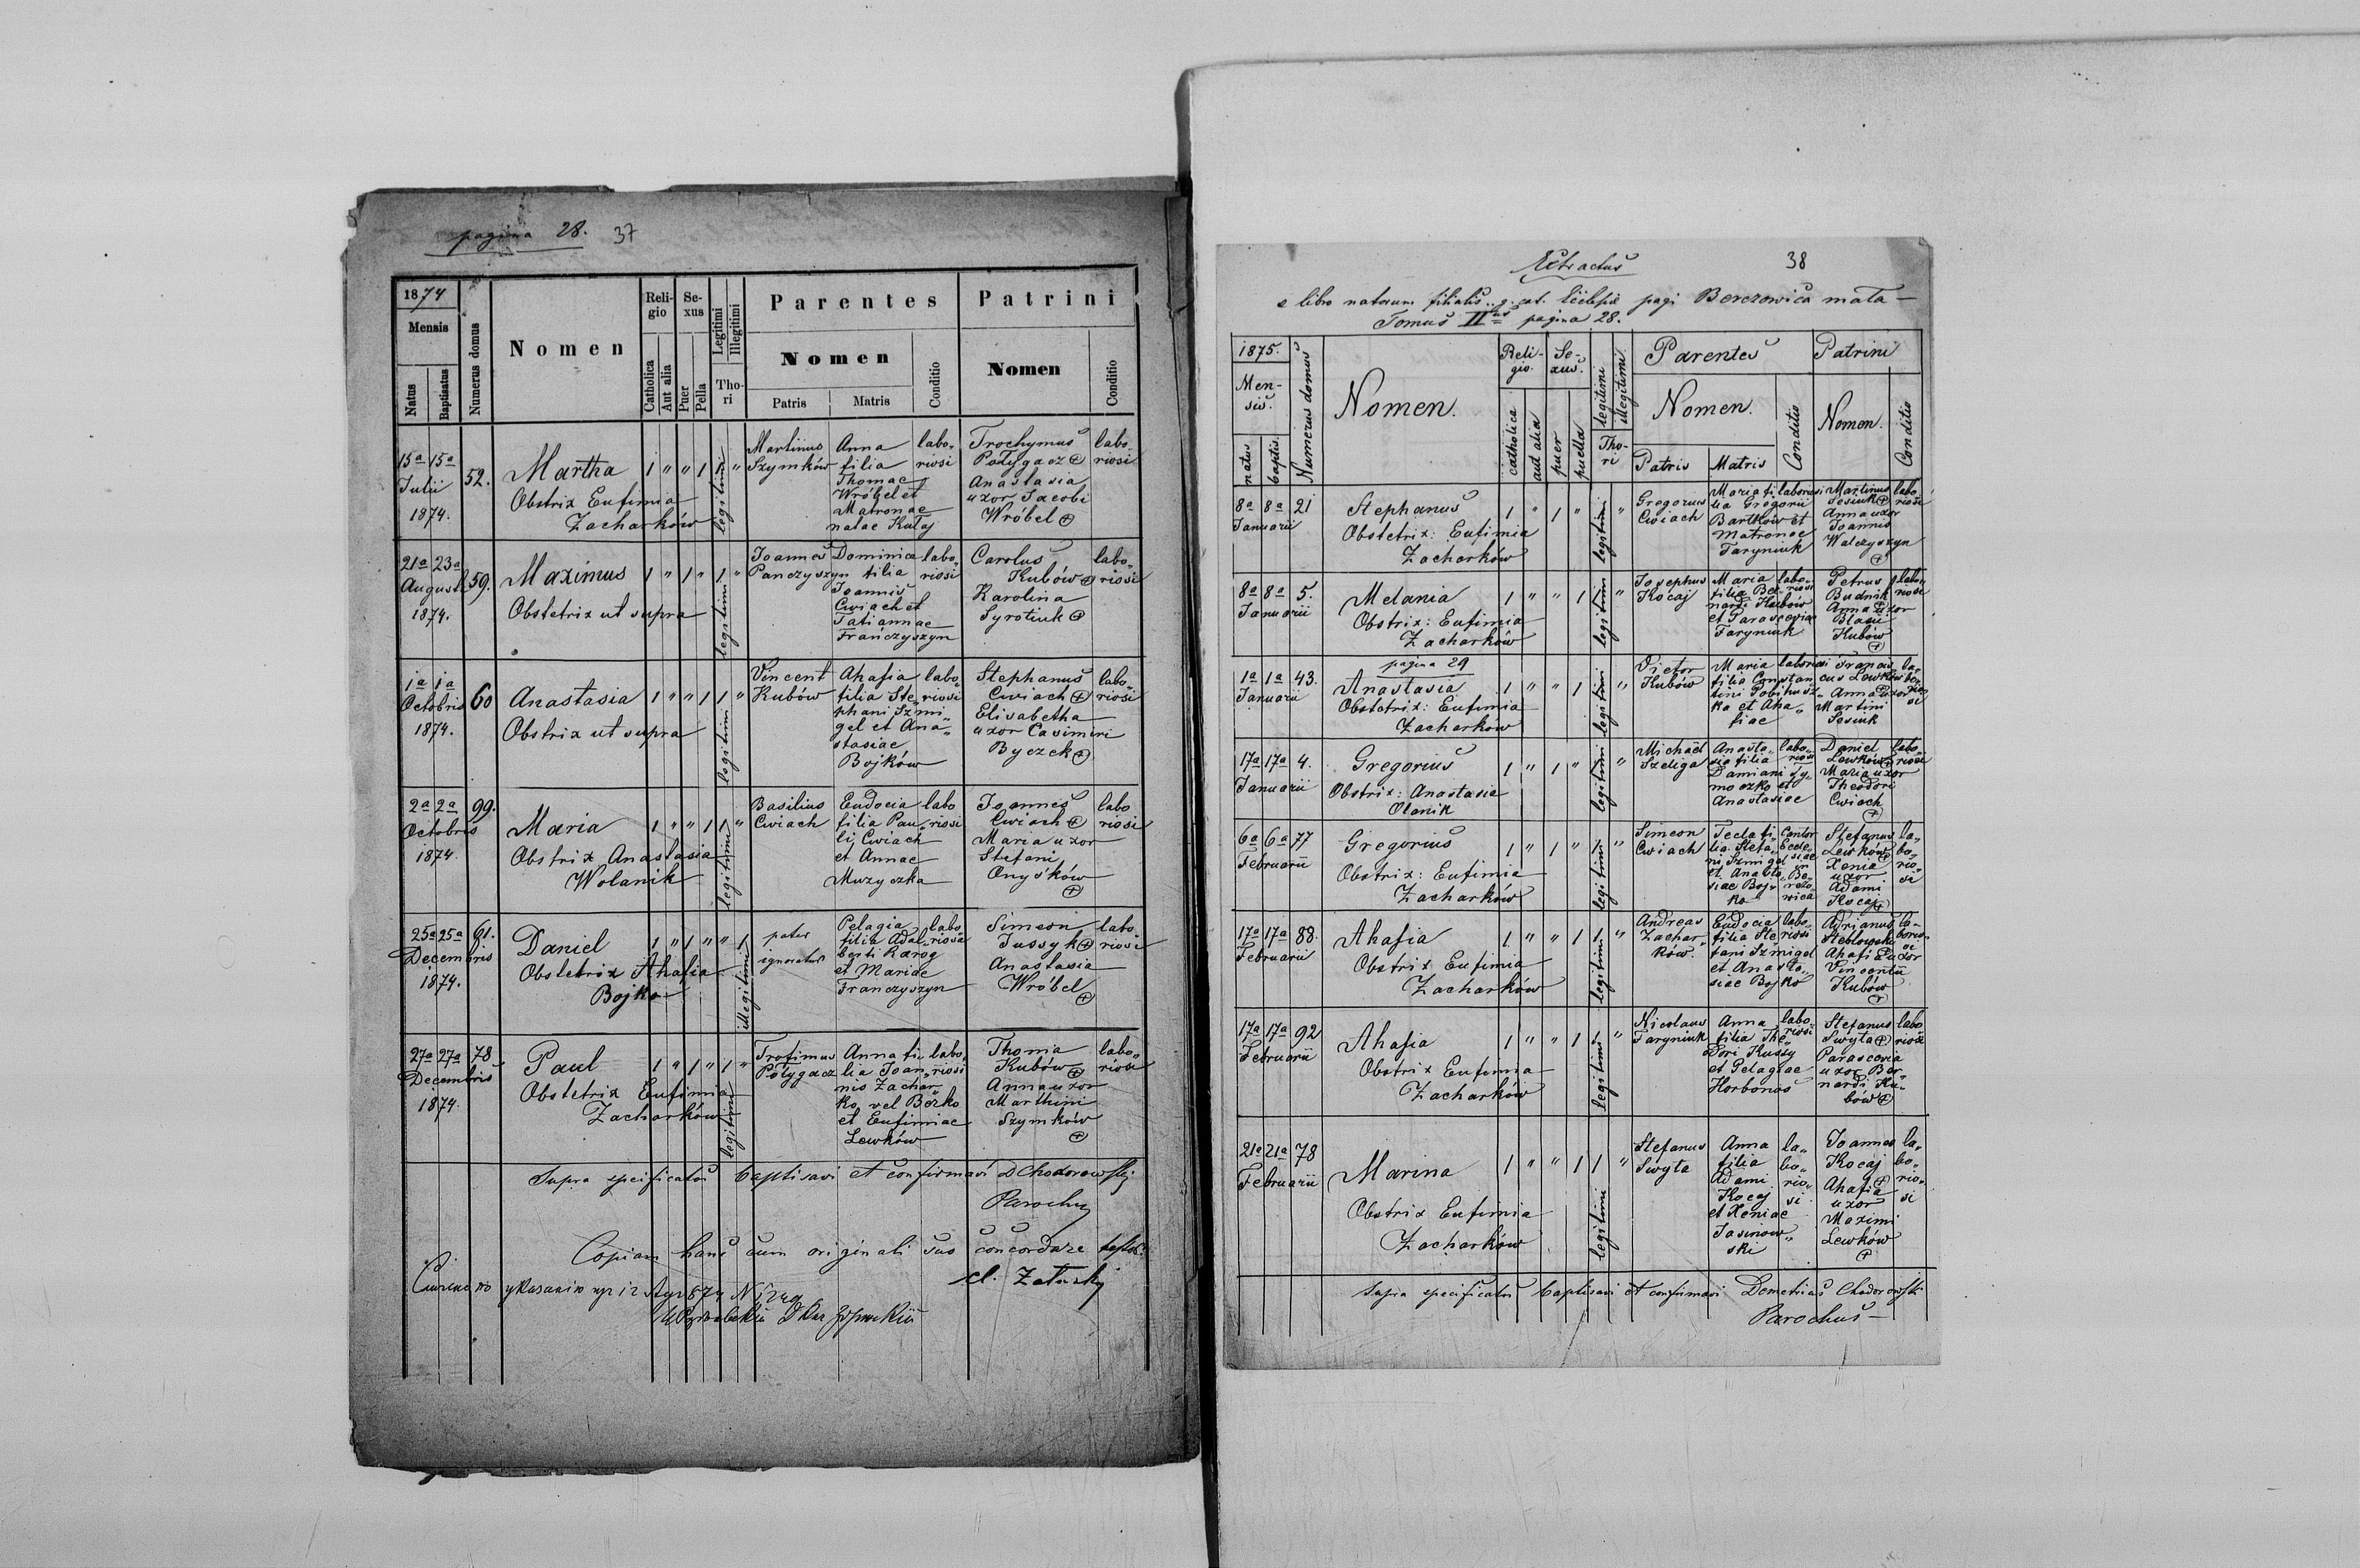 pagina 28. 37
1874
Mensis
Natus
Baptisatus
Numerus domus
Nomen
Religio
Catholica
Aut alia
Sexus
Puer
Pella
Legitimi
Illegitimi
Thori
Parentes
Nomen
Patris
Matris
Conditio
Patrini
Nomen
Conditio
15a 15a
Julii
1874.
52.
Martha
Obstrix Eufimia
Zacharków
1 " " 1 1 "
legitimi
Martinus
Szymków
Anna
filia
Thomae
Wróbel et
Matronae
natae Kułaj
labo„
riosi
Trochymus
Połygacz
Anastasia
uxor Jacobi
Wróbel
labo
riosi
21a 23a
Augusti
1874.
59.
Maximus
Obstetrix ut supra
1 " 1 " 1 "
legitimi
Joannes
Panczyszyn
Dominica
filia
Joannis
Cwiach et
Tatiannae
Franczyszyn
labo„
riosi
Carolus
Kubów
Karolina
Syrotiuk
labo„
riosi
1a 1a
Octobris
1874.
60
Anastasia
Obstrix ut supra
1 " " 1 1 "
legitimi
Vincent
Kubów
Ahafia
filia Ste„
phani Szmi„
gel et Ana„
stasiae
Bojków
labo„
riosi
Stephanus
Cwiach
Elisabetha
uxor Casimiri
Byczek
labo„
riosi
2a 2a
Octobris
1874.
99.
Maria
Obstrix Anastasia
Wolanik
1 " " 1 1 "
legitimi
Basilius
Cwiach
Eudocia
filia Pau„
li Cwiach
et Annae
Muzyczka
labo
riosi
Joannes
Cwiach
Maria uxor
Stefani
Onyśków
labo
riosi
25a 25a
Decembris
1874.
61.
Daniel
Obstetrix Ahafia
Bojko
1 " 1 " " 1
illegitimi
pater
ignoratus
Pelagia
filia Adal„
berti Karog
et Mariae
Franczyszyn
labo„
riosa
Simeon
Jussyk
Anastasia
Wróbel
labo„
riosi
27a 27a
Decembris
1874.
78
Paul
Obstetrix Eufimia
Zacharków
1 " 1 " 1 "
legitimi
Trofimus
Połygacz
Anna fi„
lia Joan„
nis Zachar„
ko vel Bożko
et Eufimiae
Lewków
labo„
riosi
Thoma
Kubów
Anna uxor
Marthini
Szymków
labo„
riosi
Supra specificatos baptisavi et confirmavi D Chodorowski
Parochus
Copiam hanc cum originali suo concordare testor
Załuski
38
Extractus
e libro natorum filialis g. cat. Ecclesiae pagi Berezowica mała
Tomus IIus pagina 28.
1875.
Mensis.
natus
baptis.
Numerus domus
Nomen.
Religio.
catholica
aut alia
Sexus.
puer
puella
legitimi
illegitimi
Thori
Parentes
Nomen.
Patris
Matris
Conditio
Patrini
Nomen.
Conditio
8a 8a
Januarii
21
Stephanus
Obstetrix: Eufimia
Zacharków
1 " 1 " "
legitimi
Gregorius
Cwiach
Maria fi
lia Gregorii
Bartków et
Matronae
Taryniuk
laboriosi
Martinus
Sesiuk
Anna uxor
Joannis
Walczyszyn
labo
riosi
8a 8a
Januarii
5.
Melania
Obstrix: Eufimia
Zacharków
1 " " 1 "
legitimi
Josephus
Kocaj
Maria
filia Ber„
nardi Kubów
et Parasceviae
Taryniuk
labo„
riosi
Petrus
Budnik
Anna uxor
Blasii
Kubów
labo„
riosi
pagina 29
1a 1a
Januarii
43.
Anastasia
Obstetrix: Eufimia
Zacharków
1 " " 1 "
legitimi
Victor
Kubów
Maria
filia Constan
tini Pobihusz„
ka et Aha„
fiae
laboriosi
Francis
cus Lewków
Anna uxor
Martini
Sesiuk
la„
bo„
rio
si
17a 17a
Januarii
4.
Gregorius
Obstrix: Anastasia
Olanik
1 " 1 " "
legitimi
Michael
Szeliga
Anasta„
sia filia
Damiani Ty„
moczko et
Anastasiae
labo„
riosi
Daniel
Lewków
Maria uxor
Theodori
Cwiach
labo„
riosi
6a 6a
Februarii
77
Gregorius
Obstrix: Eufimia
Zacharków
1 " 1 " 1 "
legitimi
Simeon
Cwiach
Tecla fi„
lia Stefa„
ni Szmigel
et Anasta„
siae Boj„
ko
Cantor
Eccle„
siae
in
Be„
rezo„
wica
Stefanus
Lewków
Xenia
uxor
Adami
Kocaj
la„
bo„
rio„
si
17a 17a
Februarii
88.
Ahafia
Obstrix Eufimia
Zacharków
1 " " 1 1 "
legitimi
Andreas
Zachar„
ków.
Eudocia
filia Ste
fani Szmigel
et Anasta„
siae Bojko
labo„
riosi
Adrianus
Steblowski
Ahafia uxor
Vincentii
Kubów
la„
borio„
si
17a 17a
Februarii
92
Ahafia
Obstrix Eufimia
Zacharków
1 " " 1 1 "
legitimi
Nicolaus
Taryniuk
Anna
filia The„
dori Kussy
et Pelagiae
Horbonos
labo„
riosi
Stefanus
Swyta
Parascevia
uxor Ber„
nardi Ku„
bów
labo„
riosi
21a 21a
Februarii
78
Marina
Obstrix Eufimia
Zacharków
1 " " 1 1 "
legitimi
Stefanus
Swyta
Anna
filia
Adami
Kocaj
et Xeniae
Jasinow„
ski
la„
bo„
rio„
si
Joannes
Kocaj
Ahafia
uxor
Maximi
Lewków
la„
bo„
rio„
si
Supra specificatos baptisavi et confirmavi Demetrius Chodorowski
Parochus